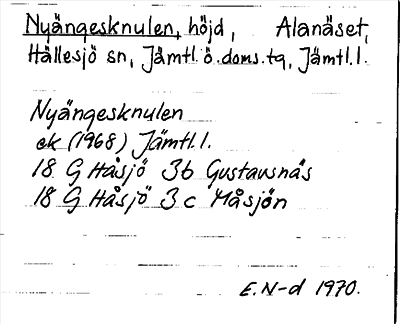 Nyängesknulen, höjd, Alanäset,
Hällesjö sn, Jämtl. ö. doms. tq, Jämtl. l.
Nyängesknulen
ek (1968) Jämtl. l.
18 G Håsjö 3b Gustavsnäs
18 G Håsjö 3c Måsjön
E. N-d 1970.